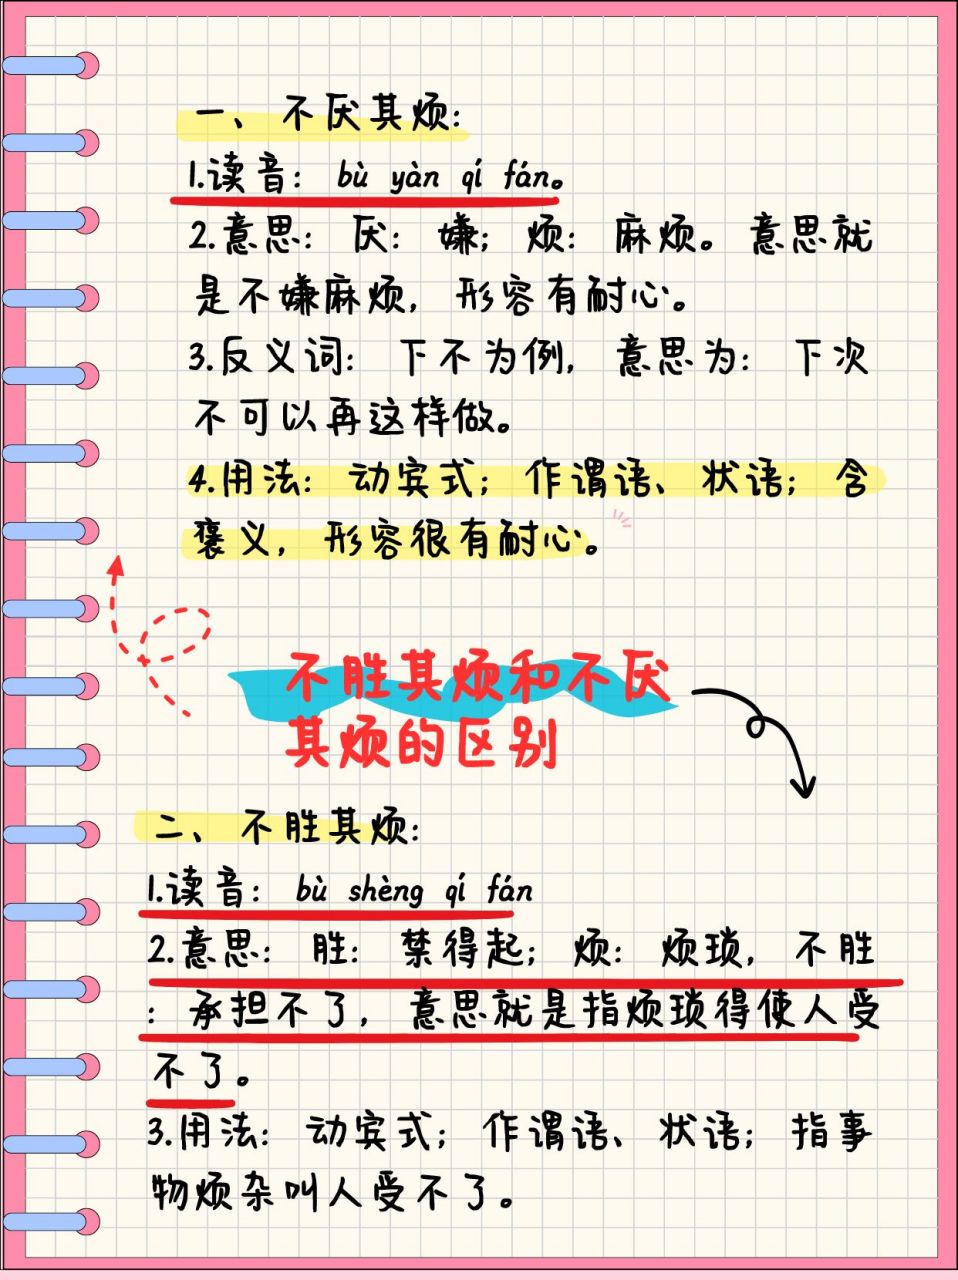 一、不厌其烦:
1.读音: bù yàn qí fán。
2.意思: 厌: 嫌; 烦: 麻烦。意思就
是不嫌麻烦, 形容有耐心。
3.反义词: 下不为例, 意思为: 下次
不可以再这样做。
4.用法: 动宾式; 作谓语、状语; 含
褒义, 形容很有耐心。
不胜其烦和不厌
其烦的区别
二、不胜其烦:
1.读音: bù shèng qí fán
2.意思: 胜: 禁得起; 烦: 烦琐, 不胜
: 承担不了, 意思就是指烦琐得使人受
不了。
3.用法: 动宾式; 作谓语、状语; 指事
物烦杂叫人受不了。